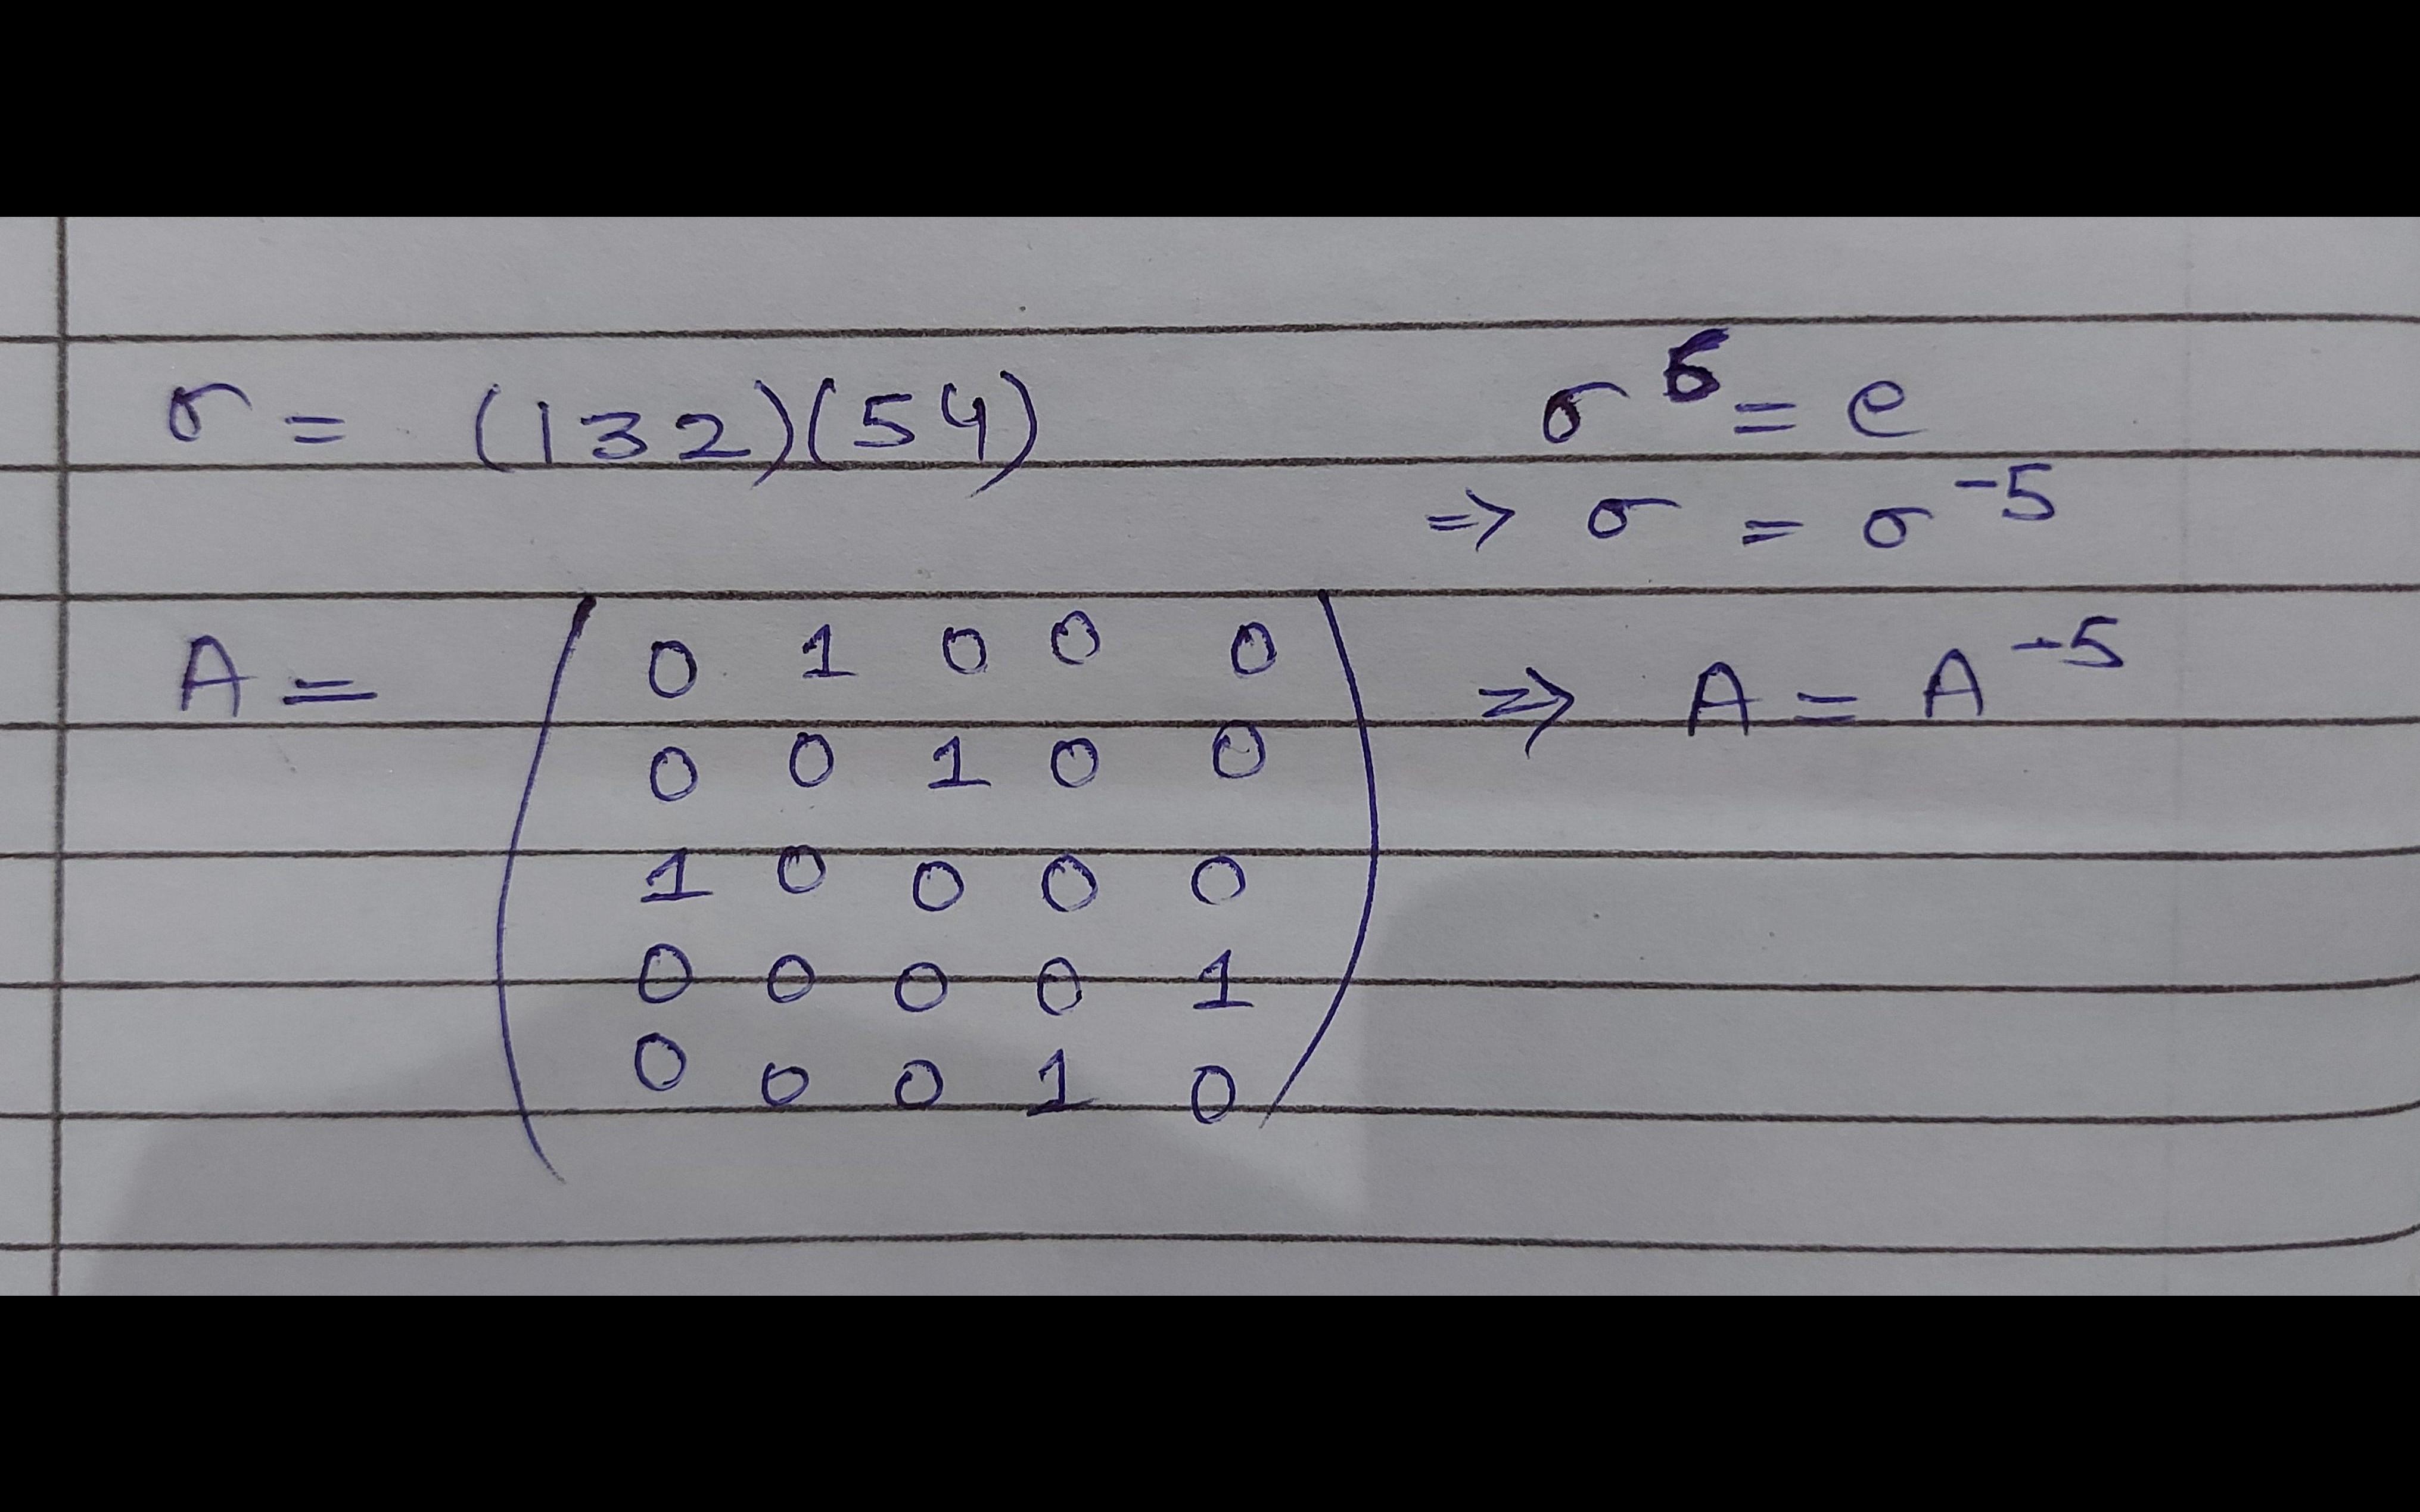 σ = (132)(54)
σ⁶ = e
⇒ σ = σ⁻⁵
A =
0 1 0 0 0
0 0 1 0 0
1 0 0 0 0
0 0 0 0 1
0 0 0 1 0
⇒ A = A⁻⁵